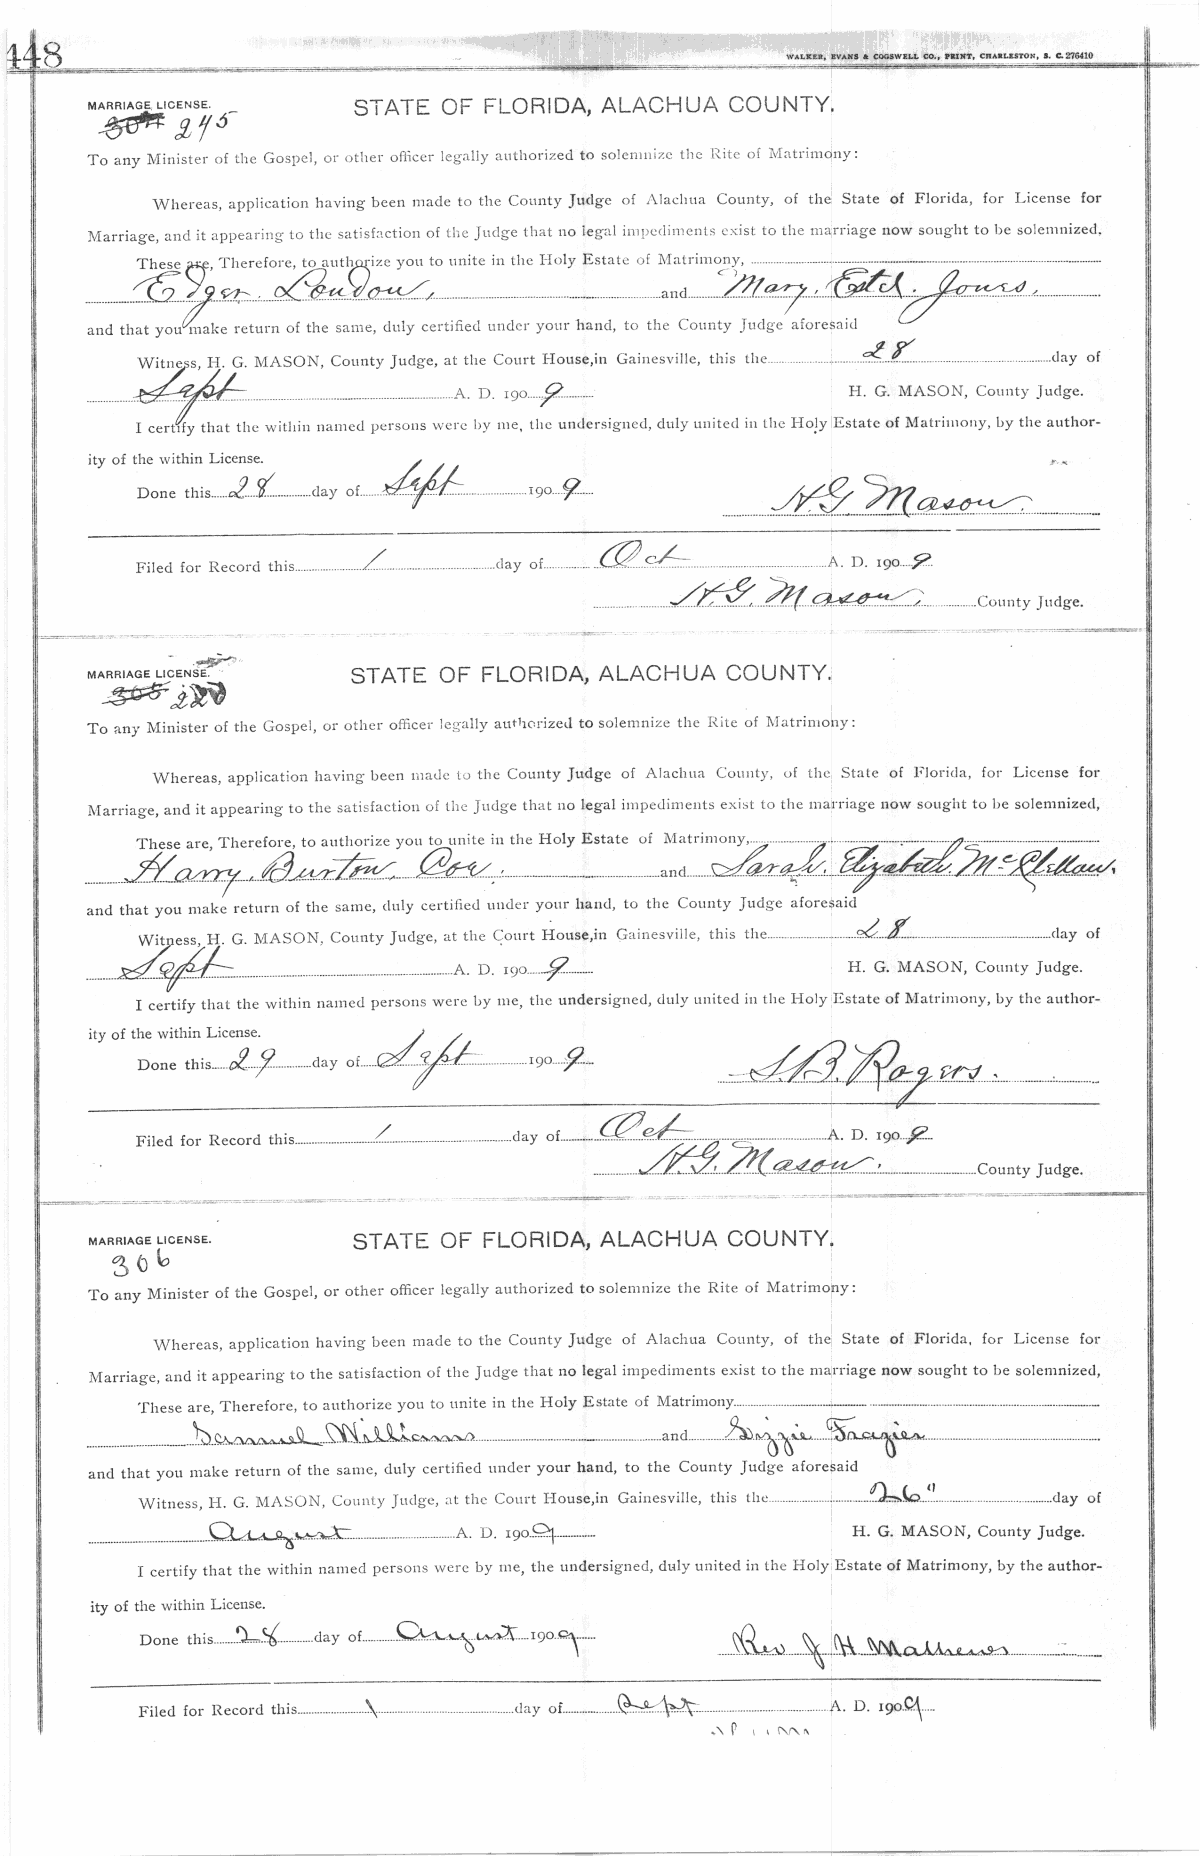 448
WALKER, EVANS & COGSWELL CO., PRINT, CHARLESTON, S. C. 276410
MARRIAGE LICENSE.
STATE OF FLORIDA, ALACHUA COUNTY.
304 245
To any Minister of the Gospel, or other officer legally authorized to solemnize the Rite of Matrimony:
Whereas, application having been made to the County Judge of Alachua County, of the State of Florida, for License for
Marriage, and it appearing to the satisfaction of the Judge that no legal impediments exist to the marriage now sought to be solemnized,
These are, Therefore, to authorize you to unite in the Holy Estate of Matrimony,
Edger. Loudon, and Mary. Estel. Jones.
and that you make return of the same, duly certified under your hand, to the County Judge aforesaid
Witness, H. G. MASON, County Judge, at the Court House, in Gainesville, this the 28 day of
Sept A. D. 1909 H. G. MASON, County Judge.
I certify that the within named persons were by me, the undersigned, duly united in the Holy Estate of Matrimony, by the author-
ity of the within License.
Done this 28 day of Sept 1909 H.G. Mason.
Filed for Record this 1 day of Oct A. D. 1909
H.G. Mason, County Judge.
MARRIAGE LICENSE.
STATE OF FLORIDA, ALACHUA COUNTY.
305
To any Minister of the Gospel, or other officer legally authorized to solemnize the Rite of Matrimony:
Whereas, application having been made to the County Judge of Alachua County, of the State of Florida, for License for
Marriage, and it appearing to the satisfaction of the Judge that no legal impediments exist to the marriage now sought to be solemnized,
These are, Therefore, to authorize you to unite in the Holy Estate of Matrimony,
Harry. Burton. Coe. and Sarah. Elizabeth. McClellan.
and that you make return of the same, duly certified under your hand, to the County Judge aforesaid
Witness, H. G. MASON, County Judge, at the Court House, in Gainesville, this the 28 day of
Sept A. D. 1909 H. G. MASON, County Judge.
I certify that the within named persons were by me, the undersigned, duly united in the Holy Estate of Matrimony, by the author-
ity of the within License.
Done this 29 day of Sept 1909 S.B. Rogers.
Filed for Record this 1 day of Oct A. D. 1909
H.G. Mason. County Judge.
MARRIAGE LICENSE.
STATE OF FLORIDA, ALACHUA COUNTY.
306
To any Minister of the Gospel, or other officer legally authorized to solemnize the Rite of Matrimony:
Whereas, application having been made to the County Judge of Alachua County, of the State of Florida, for License for
Marriage, and it appearing to the satisfaction of the Judge that no legal impediments exist to the marriage now sought to be solemnized,
These are, Therefore, to authorize you to unite in the Holy Estate of Matrimony
Samuel Williams and Lizzie Frazier
and that you make return of the same, duly certified under your hand, to the County Judge aforesaid
Witness, H. G. MASON, County Judge, at the Court House, in Gainesville, this the 26" day of
August A. D. 1909 H. G. MASON, County Judge.
I certify that the within named persons were by me, the undersigned, duly united in the Holy Estate of Matrimony, by the author-
ity of the within License.
Done this 28 day of August 1909 Rev J H Mathews
Filed for Record this 1 day of Sept A. D. 1909